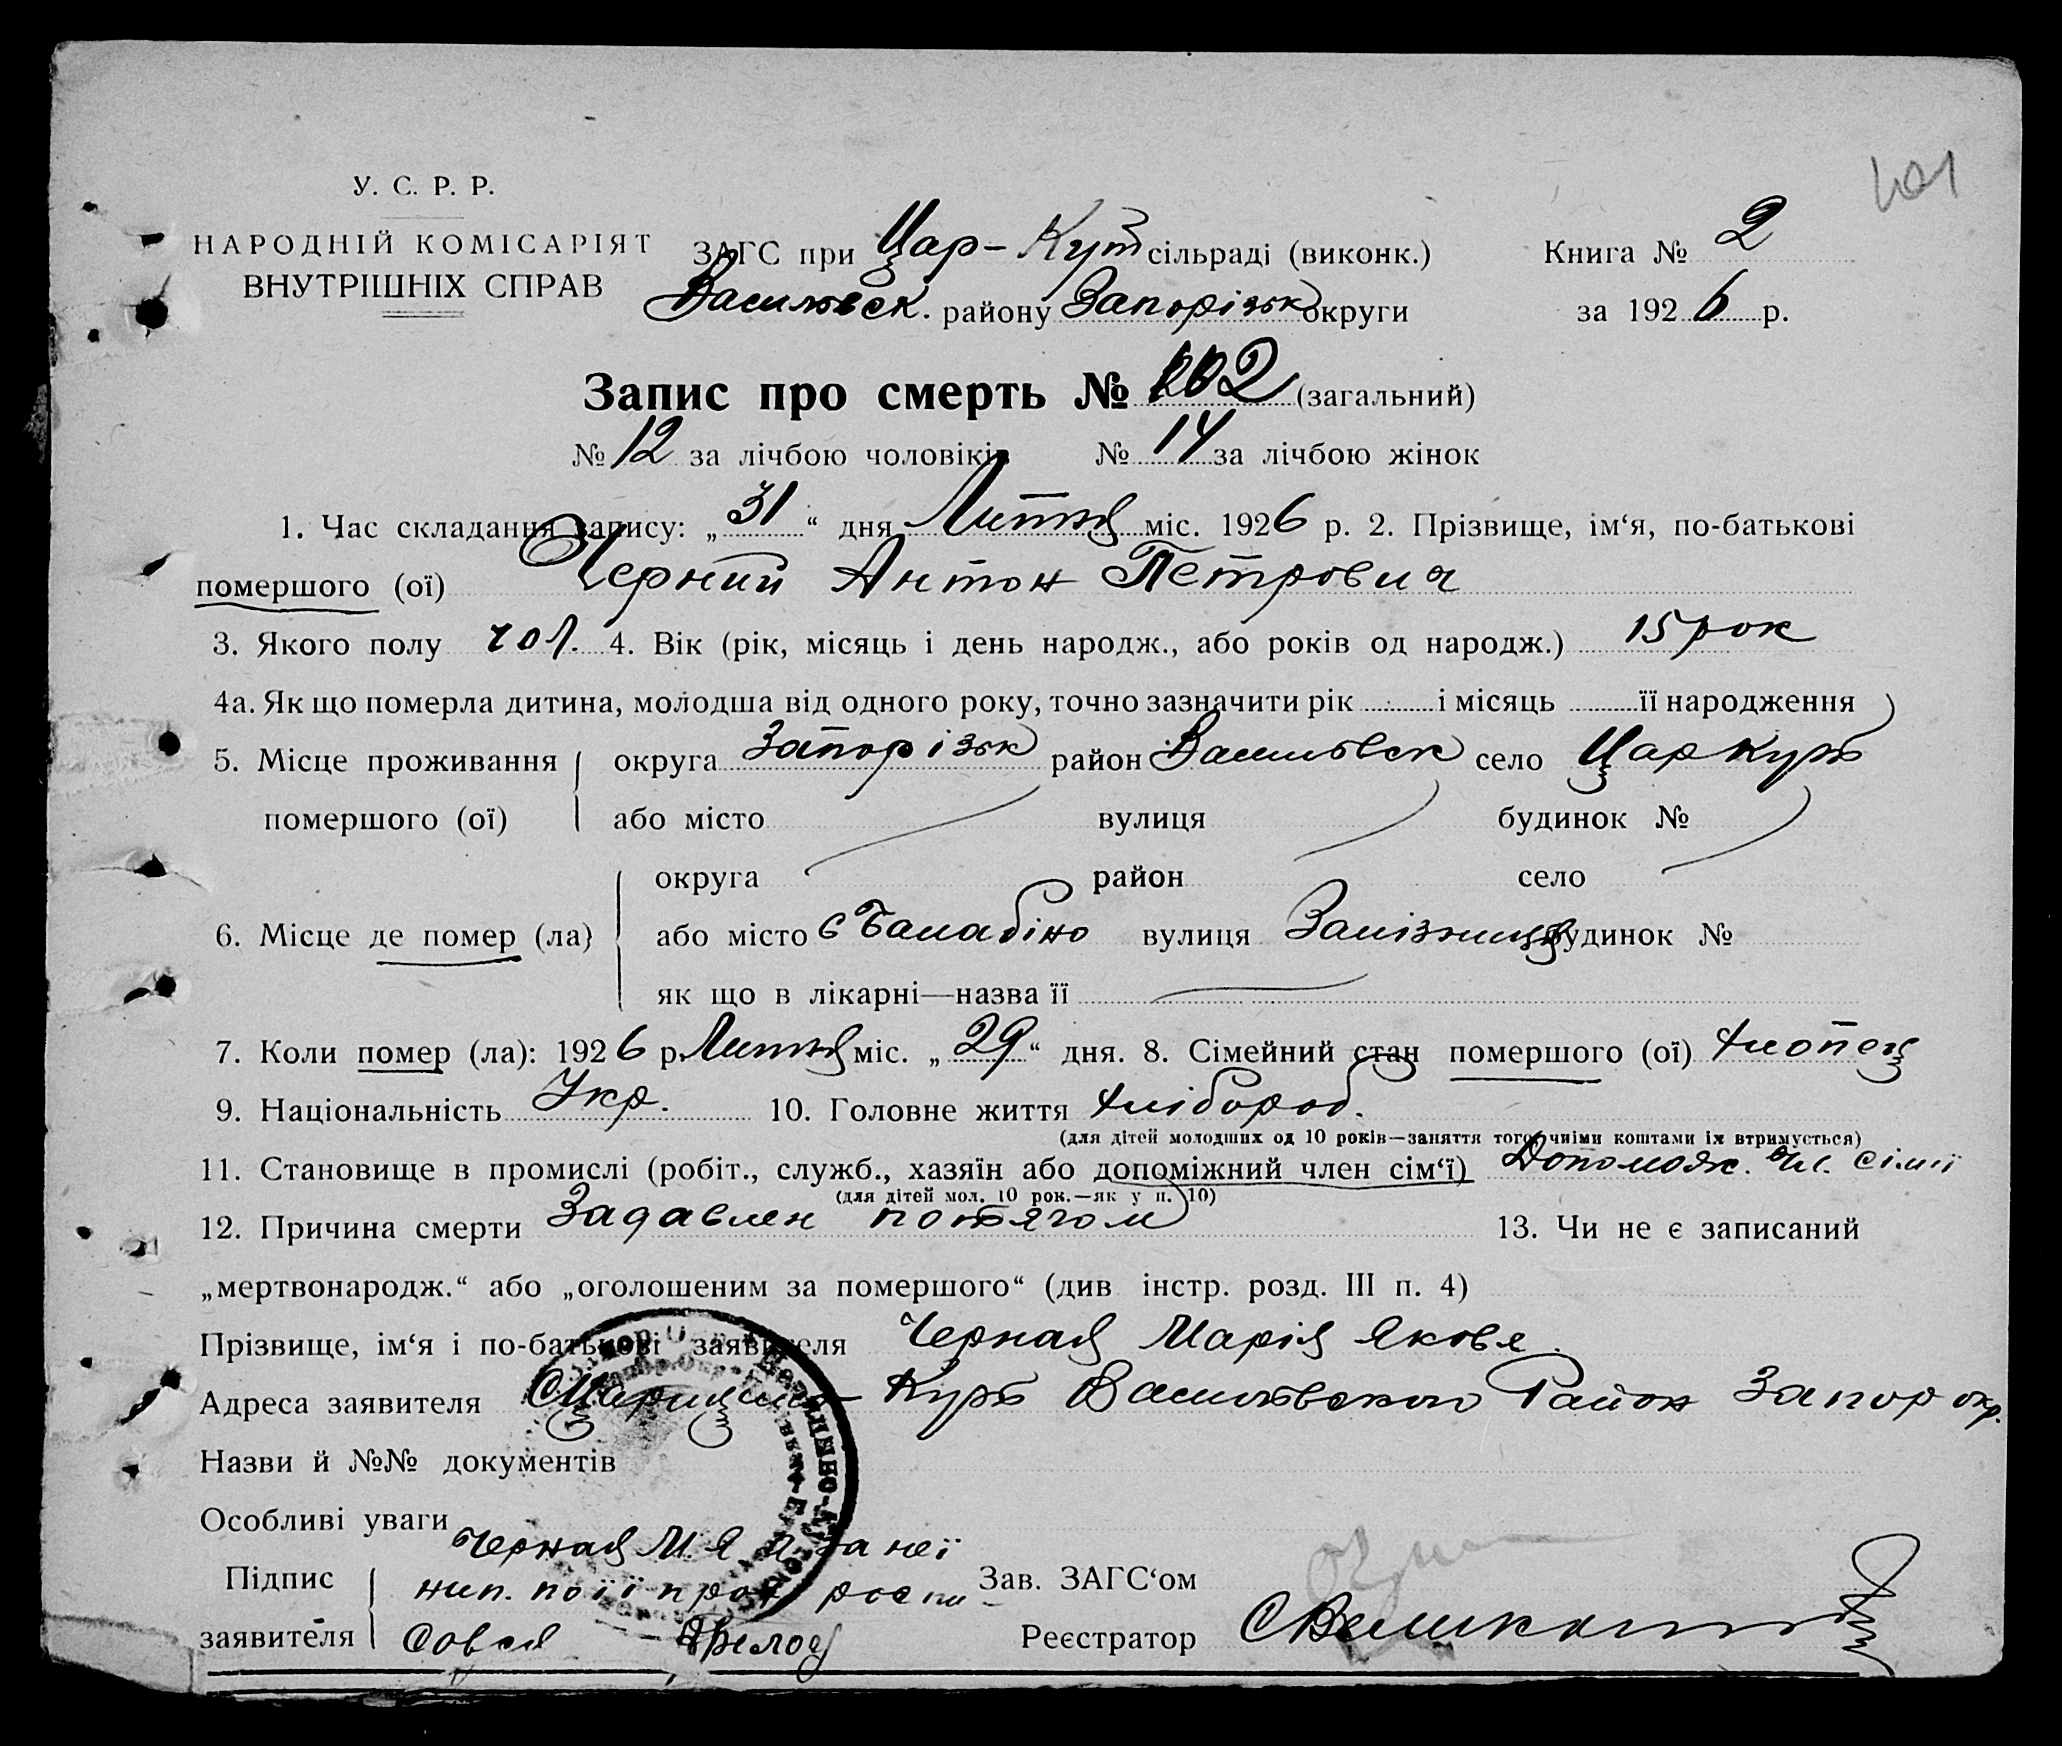 101
У. С. Р. Р.
НАРОДНІЙ КОМІСАРІЯТ
ВНУТРІШНІХ СПРАВ
ЗАГС при Цар-Кут сільраді (виконк.) Книга № 2
Васильвск. району Запорізьк округи за 1926 р.
Запис про смерть № 102 (загальний)
№ 12 за лічбою чоловіків № 14 за лічбою жінок
1. Час складання запису: „31“ дня Липня міс. 1926 р. 2. Прізвище, ім‘я, по-батькові
помершого (ої) Черний Антон Петрович
3. Якого полу чол. 4. Вік (рік, місяць і день народж., або років од народж.) 15 рок
4а. Як що померла дитина, молодша від одного року, точно зазначити рік і місяць її народження
5. Місце проживання округа Запорізьк район Васильвск село Царкут
помершого (ої) або місто вулиця будинок №
округа район село
6. Місце де помер (ла) або місто с Балабіно вулиця Залізниця будинок №
як що в лікарні—назва її
7. Коли помер (ла): 1926 р. Липня міс. „29“ дня. 8. Сімейний стан помершого (ої) хлопець
9. Національність Укр. 10. Головне життя хлібороб.
(для дітей молодших од 10 років—заняття того, чиїми коштами їх втримується)
11. Становище в промислі (робіт., служб., хазяїн або допоміжний член сім‘ї) Допомож. чл. сімї
(для дітей мол. 10 рок.—як у п. 10)
12. Причина смерти Задавлен потягом 13. Чи не є записаний
„мертвонародж.“ або „оголошеним за помершого“ (див. інстр. розд. III п. 4)
Прізвище, ім‘я і по-батькові заявителя Черная Марія Яковл.
Адреса заявителя С Царицин Кут Васильвского Район Запор окр.
Назви й №№ документів
Особливі уваги
Черная М. Я. а за неї
Підпис нип. по її прох роспи- Зав. ЗАГС‘ом
заявителя Реєстратор